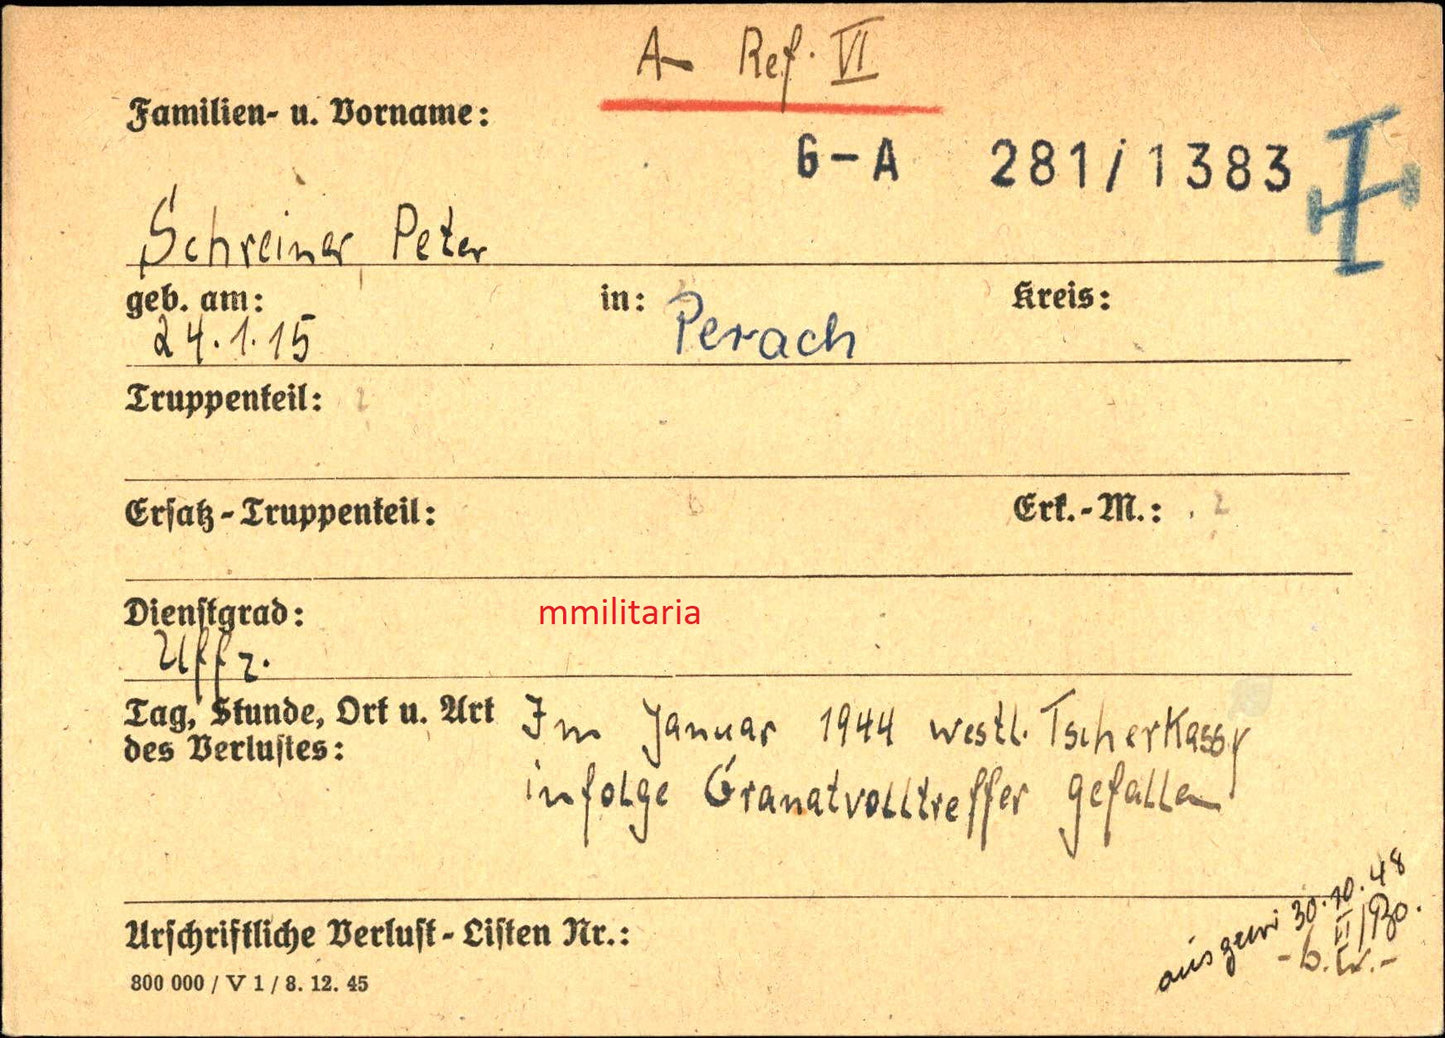 A Ref. VI
Familien- u. Vorname:
G-A 281/1383
Schreiner Peter
geb. am: in: Kreis:
24.1.15 Perach
Truppenteil:
Ersatz-Truppenteil: Erk.-M.:
Dienstgrad:
mmilitaria
Uffz.
Tag, Stunde, Ort u. Art
des Verlustes:
Im Januar 1944 westl. Tscherkassy
infolge Granatvolltreffer gefallen
Urschriftliche Verlust-Listen Nr.:
800 000 / V 1 / 8. 12. 45
30.10.48
VI/Bo.